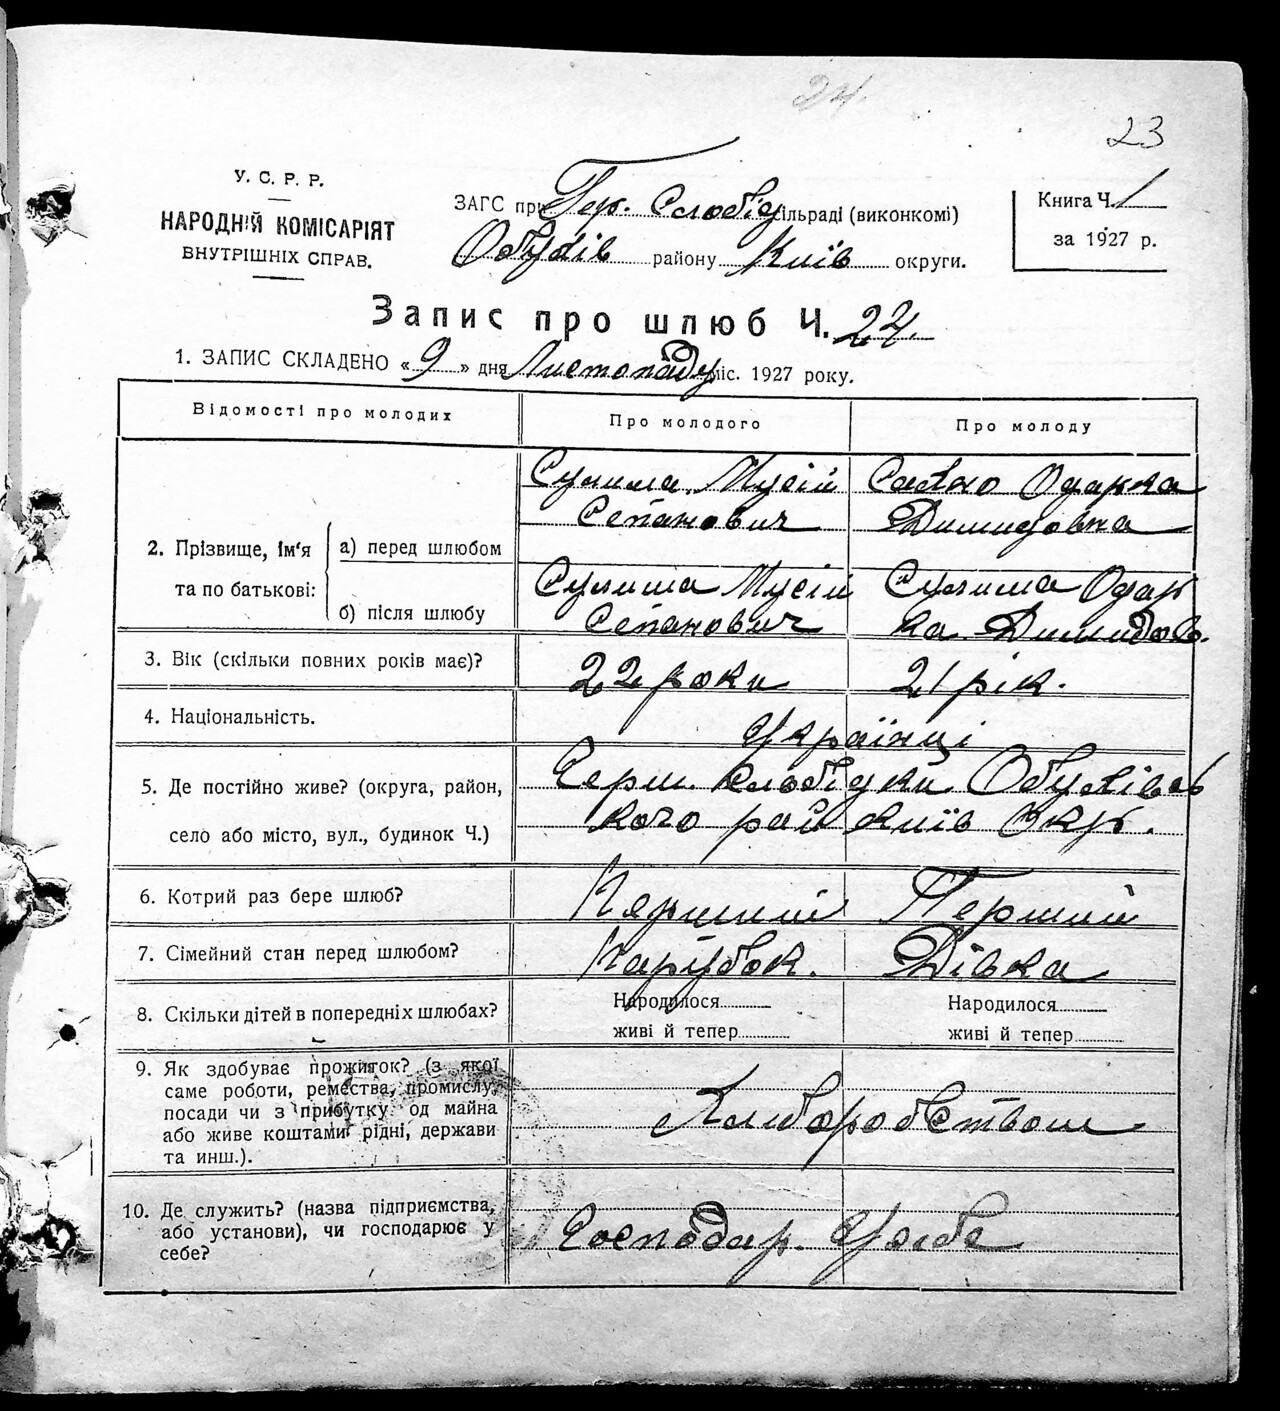 24.
23
У. С. Р. Р.
НАРОДНІЙ КОМІСАРІЯТ
ВНУТРІШНІХ СПРАВ.
ЗАГС при Гер. Слобід сільраді (виконкомі)
Обухів району Київ округи.
Книга Ч. 1
за 1927 р.
Запис про шлюб Ч. 24.
1. ЗАПИС СКЛАДЕНО « 9 » дня Листопаду міс. 1927 року.
Відомості про молодих
Про молодого
Про молоду
2. Прізвище, ім'я
та по батькові:
а) перед шлюбом
Сулима Мусій
Степанович
Одарка
Димидовна
б) після шлюбу
Сулима Мусій
Степанович
Сулима Одар
ка Димидов.
3. Вік (скільки повних років має)?
22 роки
21 рік.
4. Національність.
Українці
5. Де постійно живе? (округа, район,
село або місто, вул., будинок Ч.)
Герм. Слобідки Обухівсь
кого рай Київ Окр.
6. Котрий раз бере шлюб?
Перший
Перший
7. Сімейний стан перед шлюбом?
Парубок.
Дівка
8. Скільки дітей в попередніх шлюбах?
Народилося
живі й тепер
Народилося
живі й тепер
9. Як здобуває прожиток? (з якої
саме роботи, ремества, промислу,
посади чи з прибутку од майна
або живе коштами рідні, держави
та инш.).
Хлиборобством
10. Де служить? (назва підприємства,
або установи), чи господарює у
себе?
Господар. У себе